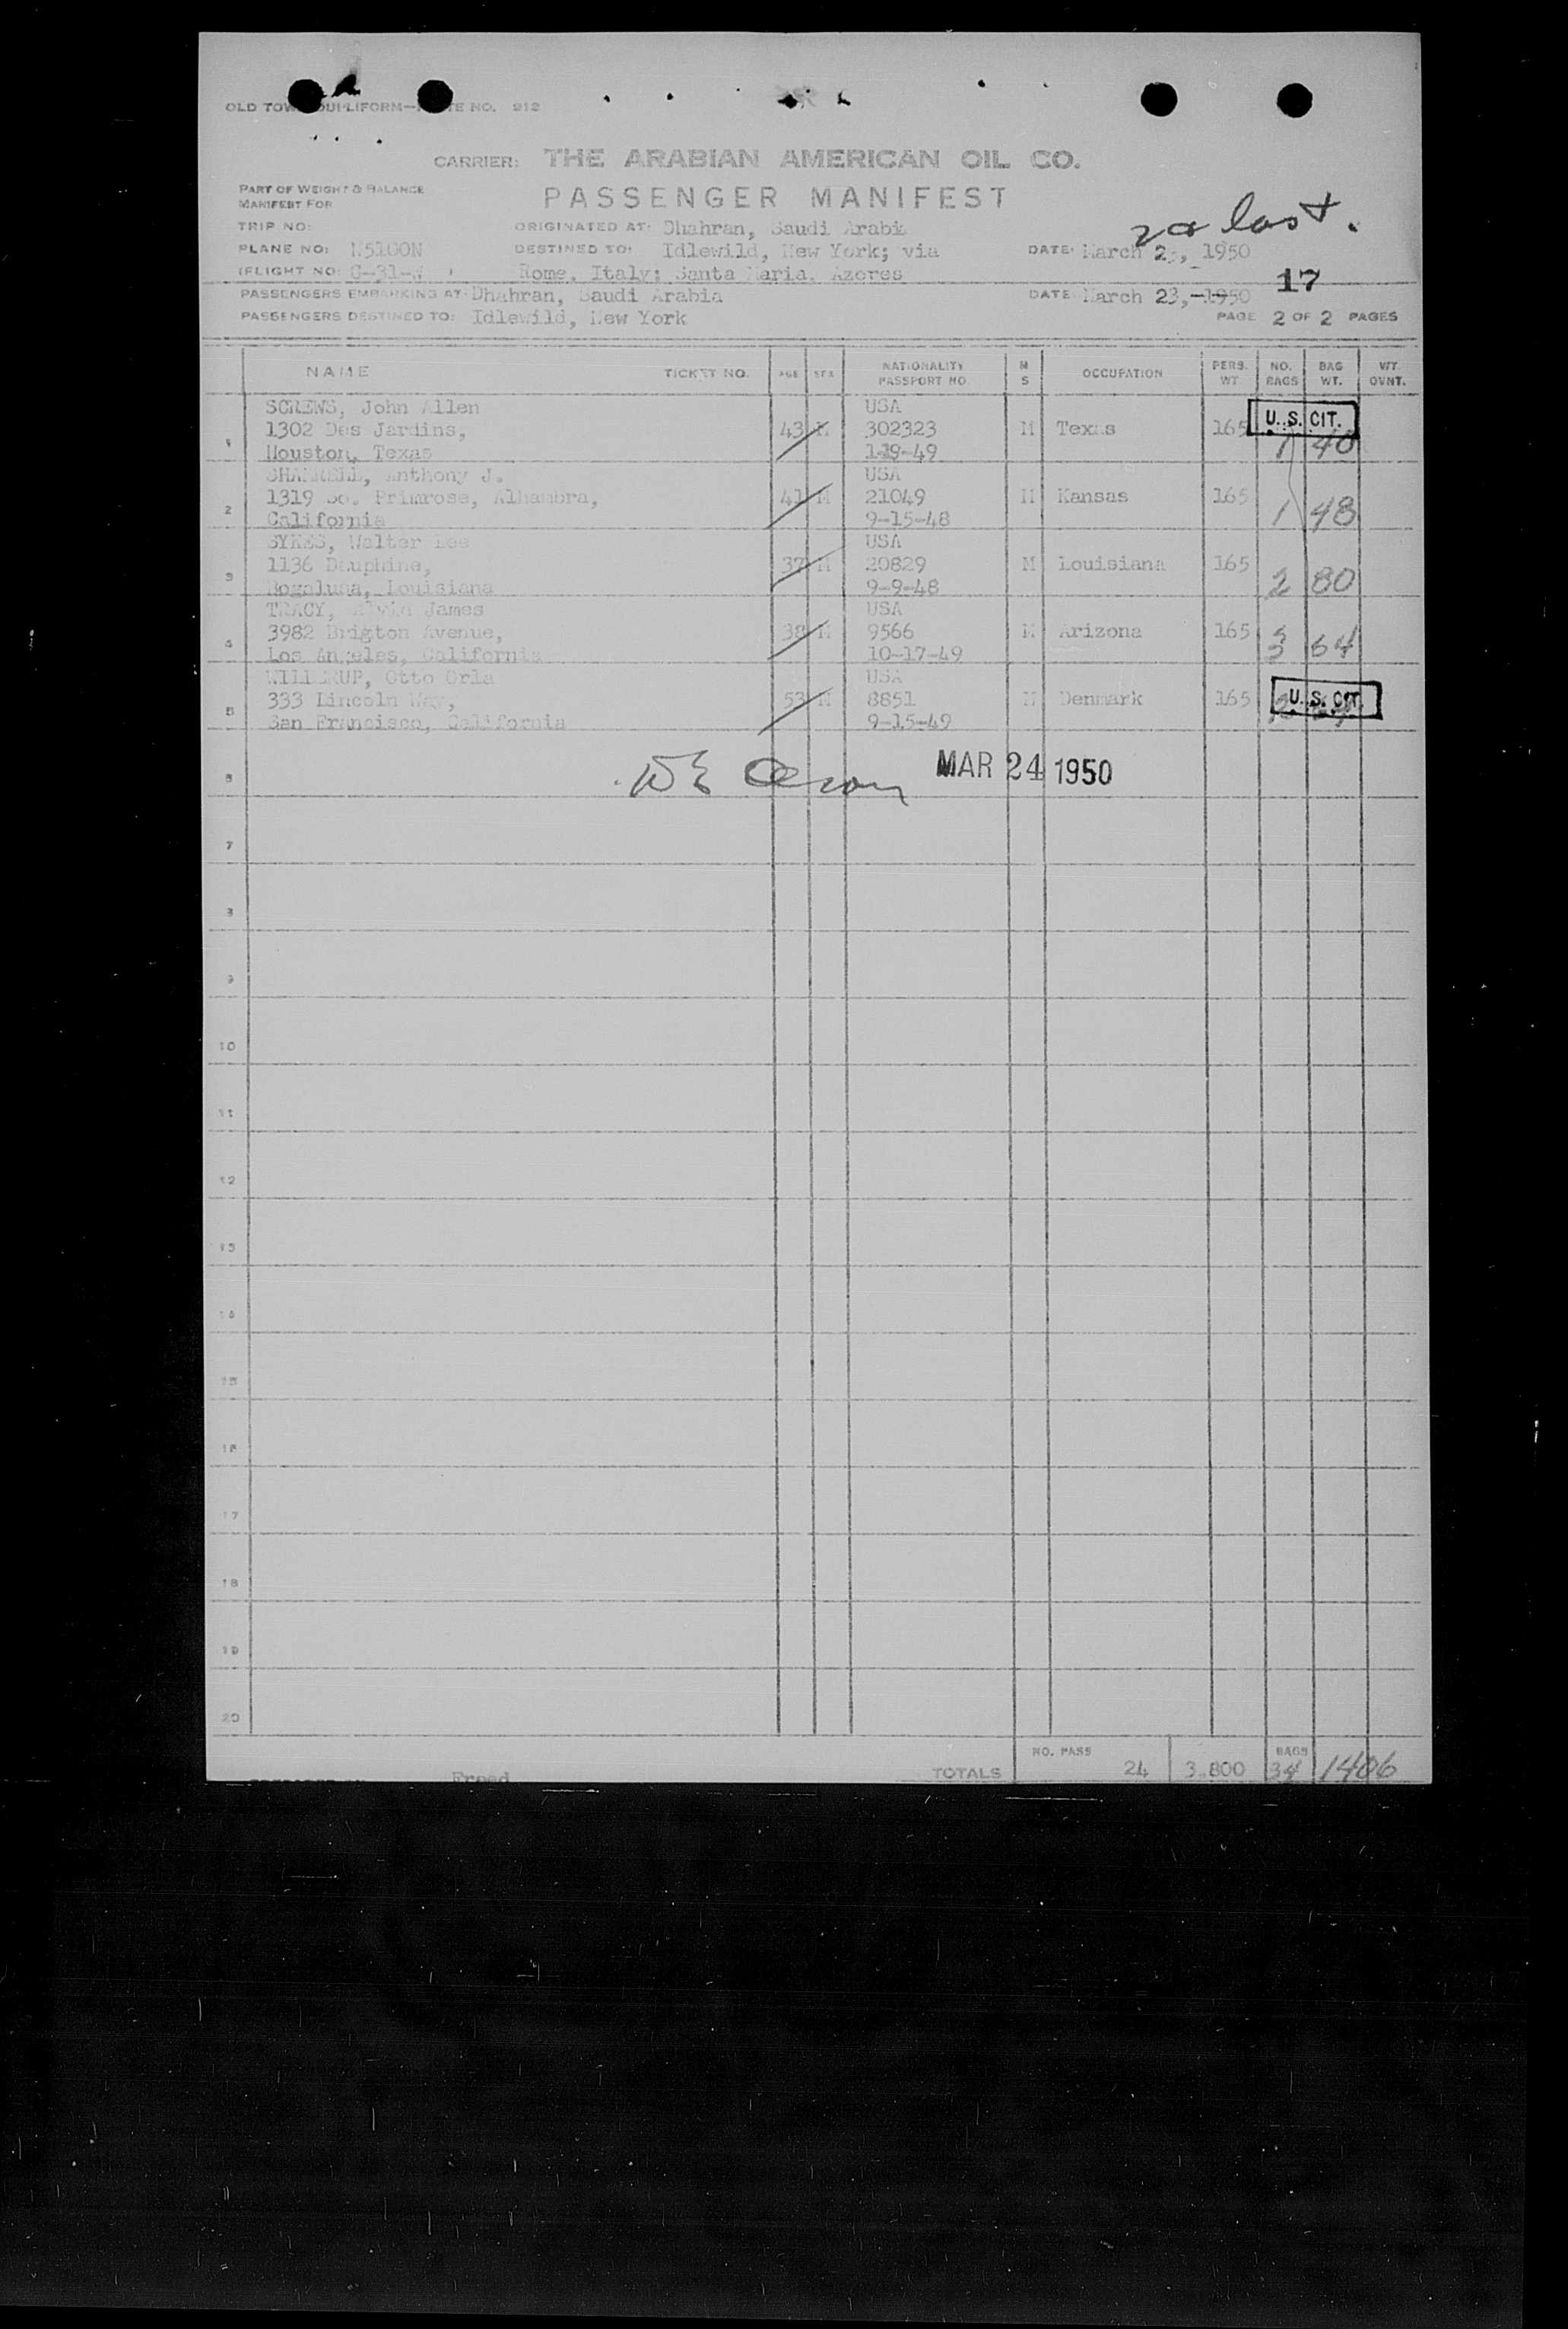 OLD TOWN NO. 912
CARRIER: THE ARABIAN AMERICAN OIL CO.
PART OF WEIGHT & BALANCE
MANIFEST FOR
PASSENGER MANIFEST
2a last.
TRIP NO: ORIGINATED AT: Dhahran, Saudi Arabia
PLANE NO: DESTINED TO: Idlewild, New York; via DATE: March 1950
FLIGHT NO: Rome, Italy; Santa Maria, Azores
17
PASSENGERS EMBARKING AT: Dhahran, Saudi Arabia DATE: March 23, 1950
PASSENGERS DESTINED TO: Idlewild, New York PAGE 2 OF 2 PAGES
NAME TICKET NO. AGE SEX NATIONALITY PASSPORT NO. M S OCCUPATION PERS. WT. NO. BAGS BAG WT. WT. OVNT.
SCREWS, John Allen USA U.S. CIT.
1 1302 Des Jardins, 43 M 302323 M Texas 165 1 40
Houston, Texas 1-19-49
Anthony J. USA
2 1319 So. Primrose, Alhambra, 41 M 21049 M Kansas 165 1 48
California 9-15-48
SYKES, Walter Lee USA
3 1136 Dauphine, 37 M 20829 M Louisiana 165 2 80
Bogalusa, Louisiana 9-9-48
TRACY, James USA
4 3982 Brigton Avenue, 38 M 9566 M Arizona 165 64
Los Angeles, California 10-17-49
Otto Orla USA
5 333 Lincoln Way, 53 M 8851 M Denmark 165 U.S. CIT.
San Francisco, California 9-15-49
6 MAR 24 1950
7
8
9
10
11
12
13
14
15
16
17
18
19
20
Freed TOTALS NO. PASS 24 3,800 BAGS 34 1406